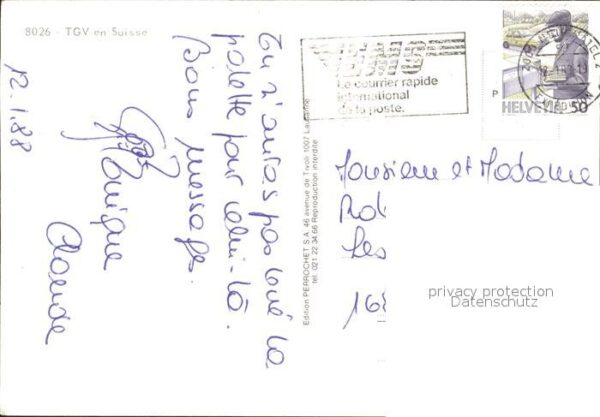 8026 - TGV en Suisse
12.1.88
Tu n'auras pas loué la
palette pour celui-là.
Bons messages.
Monique
Claude
Edition PERROCHET S.A. 46 avenue de Tivoli 1007 Lausanne
tel. 021 22.34.66 Reproduction interdite
EMS
Le courrier rapide
international
de la poste.
P
HELVETIA 50
Monsieur et Madame
Les
privacy protection
Datenschutz